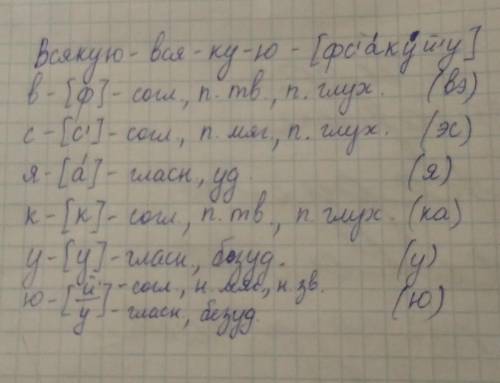 Всякую - вся - ку - ю - [фс'а́куй'у]
в - [ф] - согл., п. тв., п. глух. (вэ)
с - [с'] - согл., п. мяг., п. глух. (эс)
я - [а́] - гласн., уд. (я)
к - [к] - согл., п. тв., п. глух. (ка)
у - [у] - гласн., безуд. (у)
ю - [й] - согл., н. мяг., н. зв. (ю)
[у] - гласн., безуд.